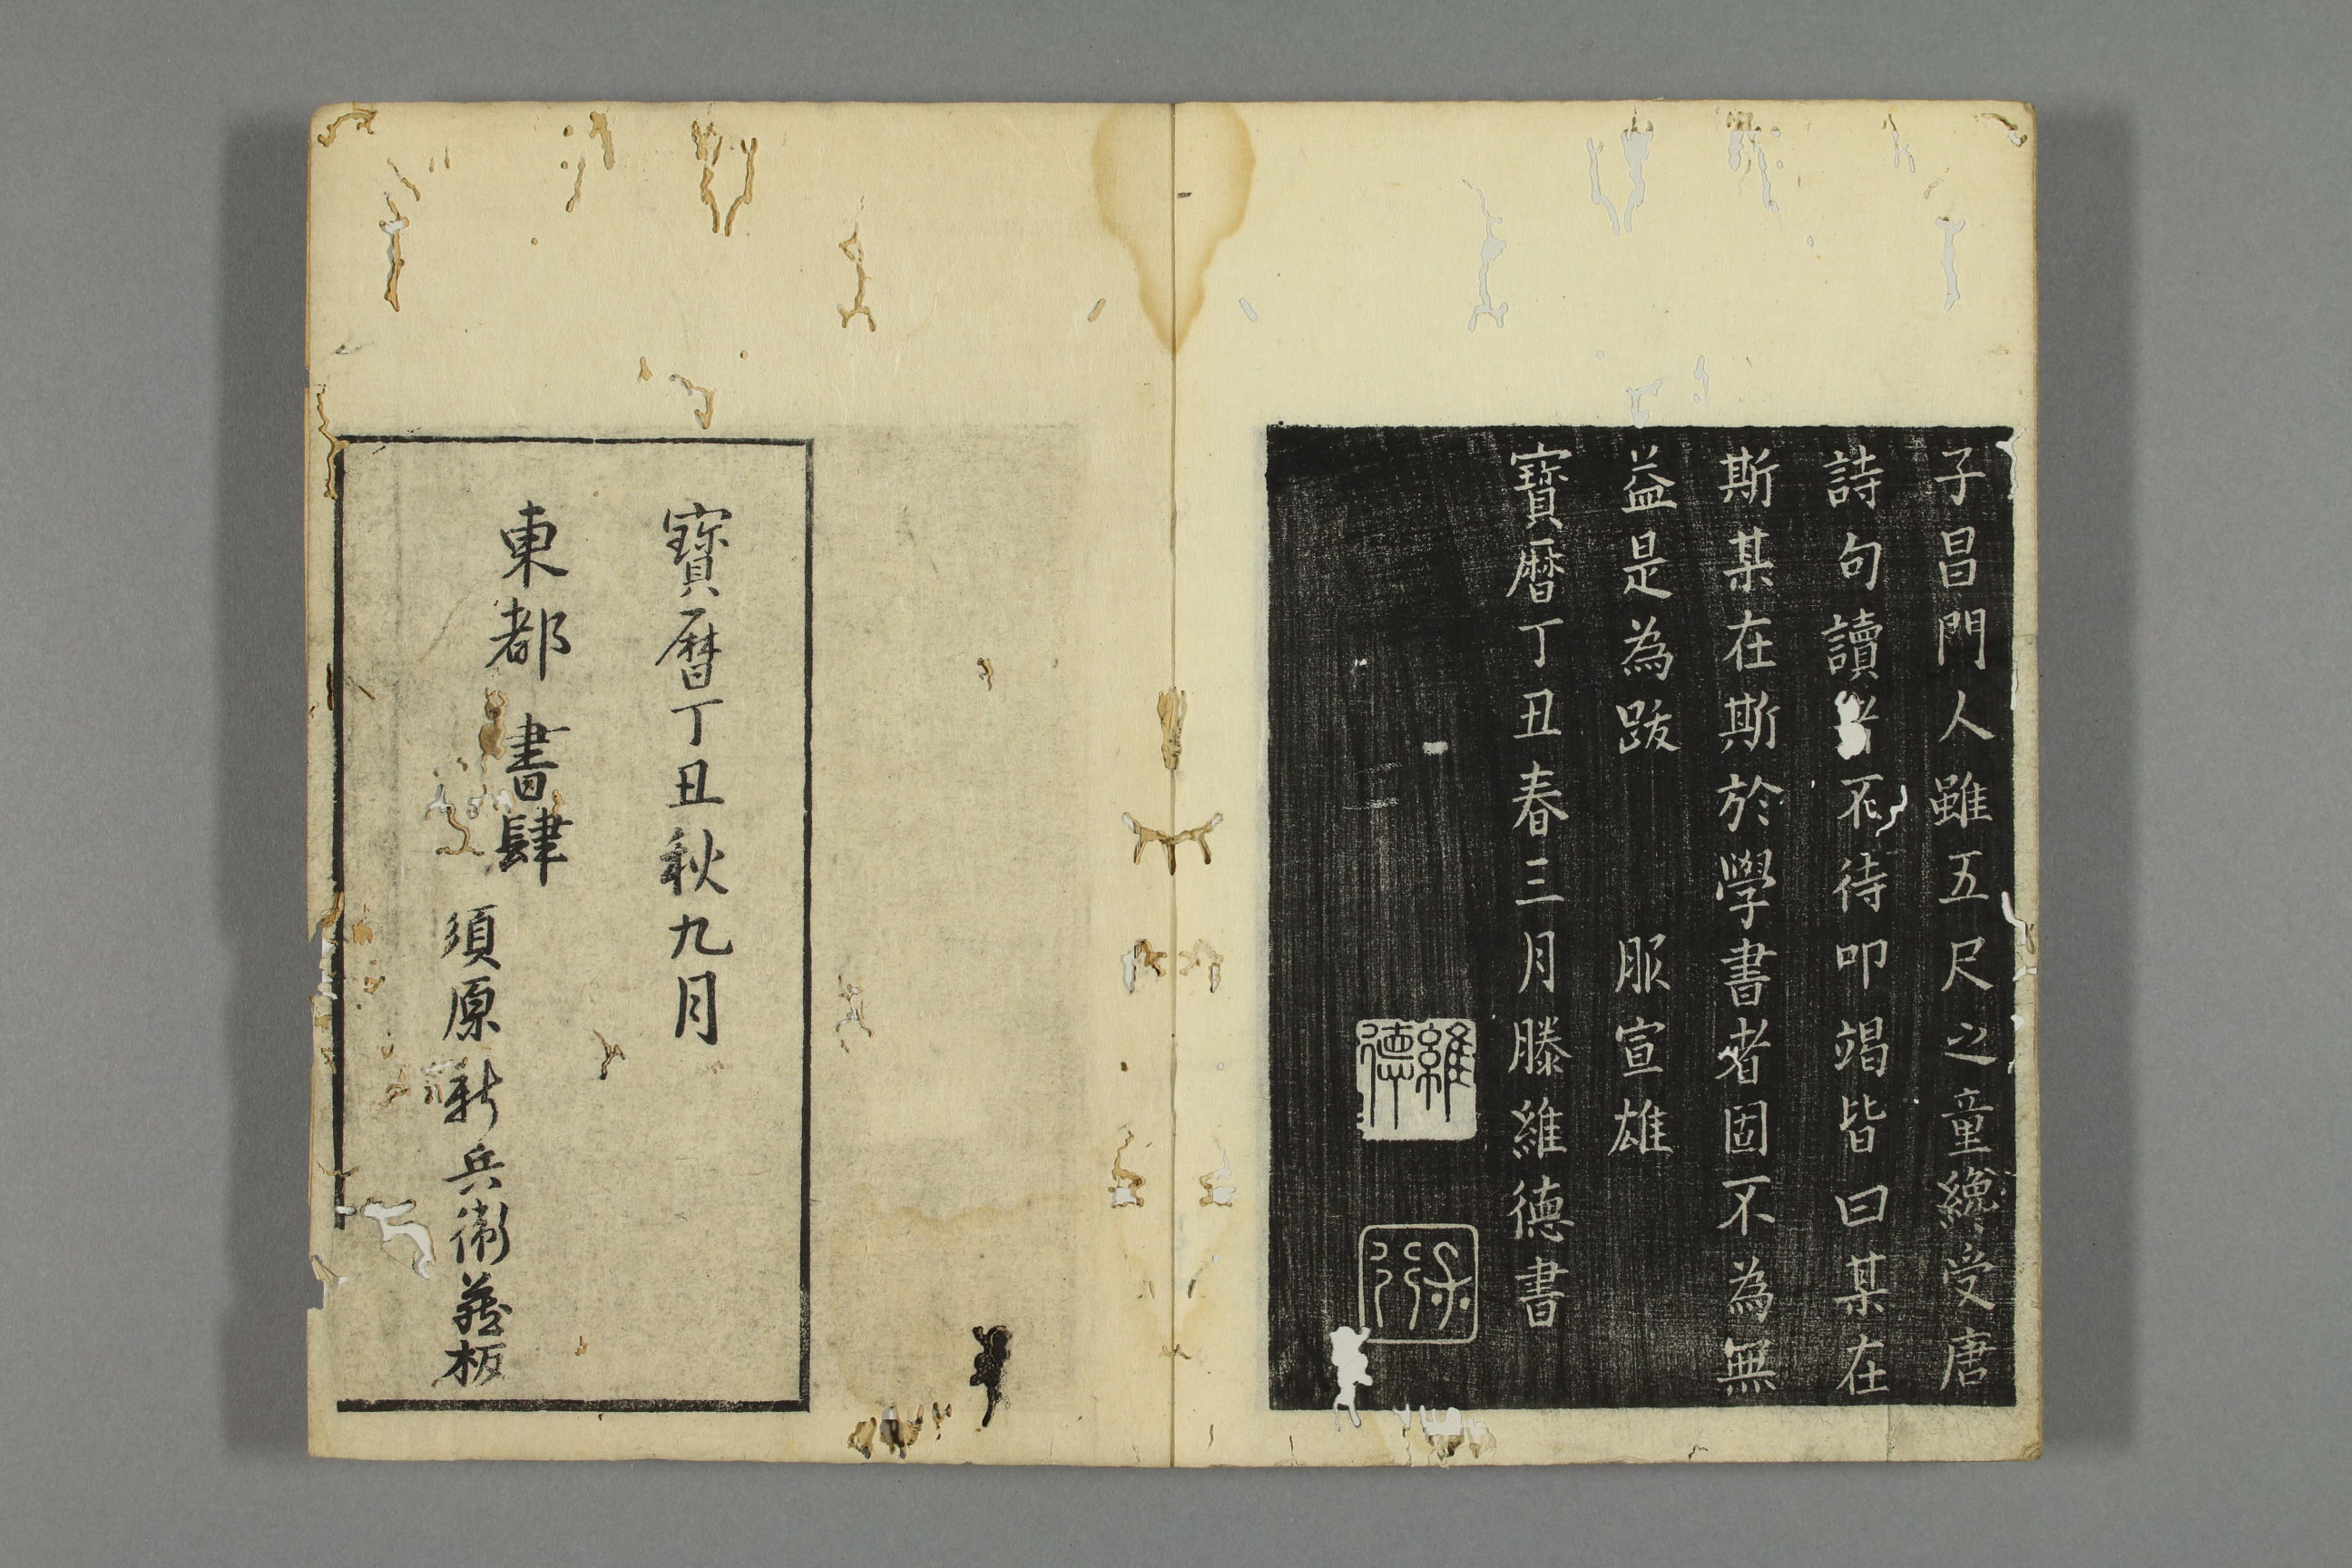 子昌門人雖五尺之童纔受唐
詩句讀者不待叩竭皆曰某在
斯某在斯於學書者固不為無
益是為跋　服宣雄
寶暦丁丑春三月滕維德書
維德
寶暦丁丑秋九月
東都書肆
須原新兵衛藏板